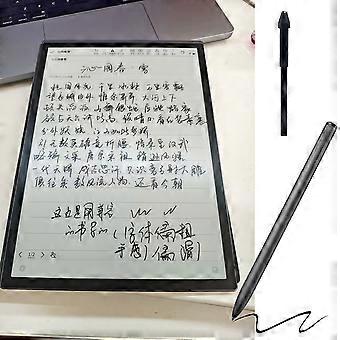 沁园春 雪
北国风光 千里冰封 万里雪飘
望长城内外 惟余莽莽 大河上下
顿失滔滔 山舞银蛇 原驰蜡象
欲与天公试比高 须晴日 看红装素裹
分外妖娆 江山如此多娇
引无数英雄竞折腰 惜秦皇汉武
略输文采 唐宗宋祖 稍逊风骚
一代天骄 成吉思汗 只识弯弓射大雕
俱往矣 数风流人物 还看今朝
的书写(字体偏粗
手感偏滑)
1/2